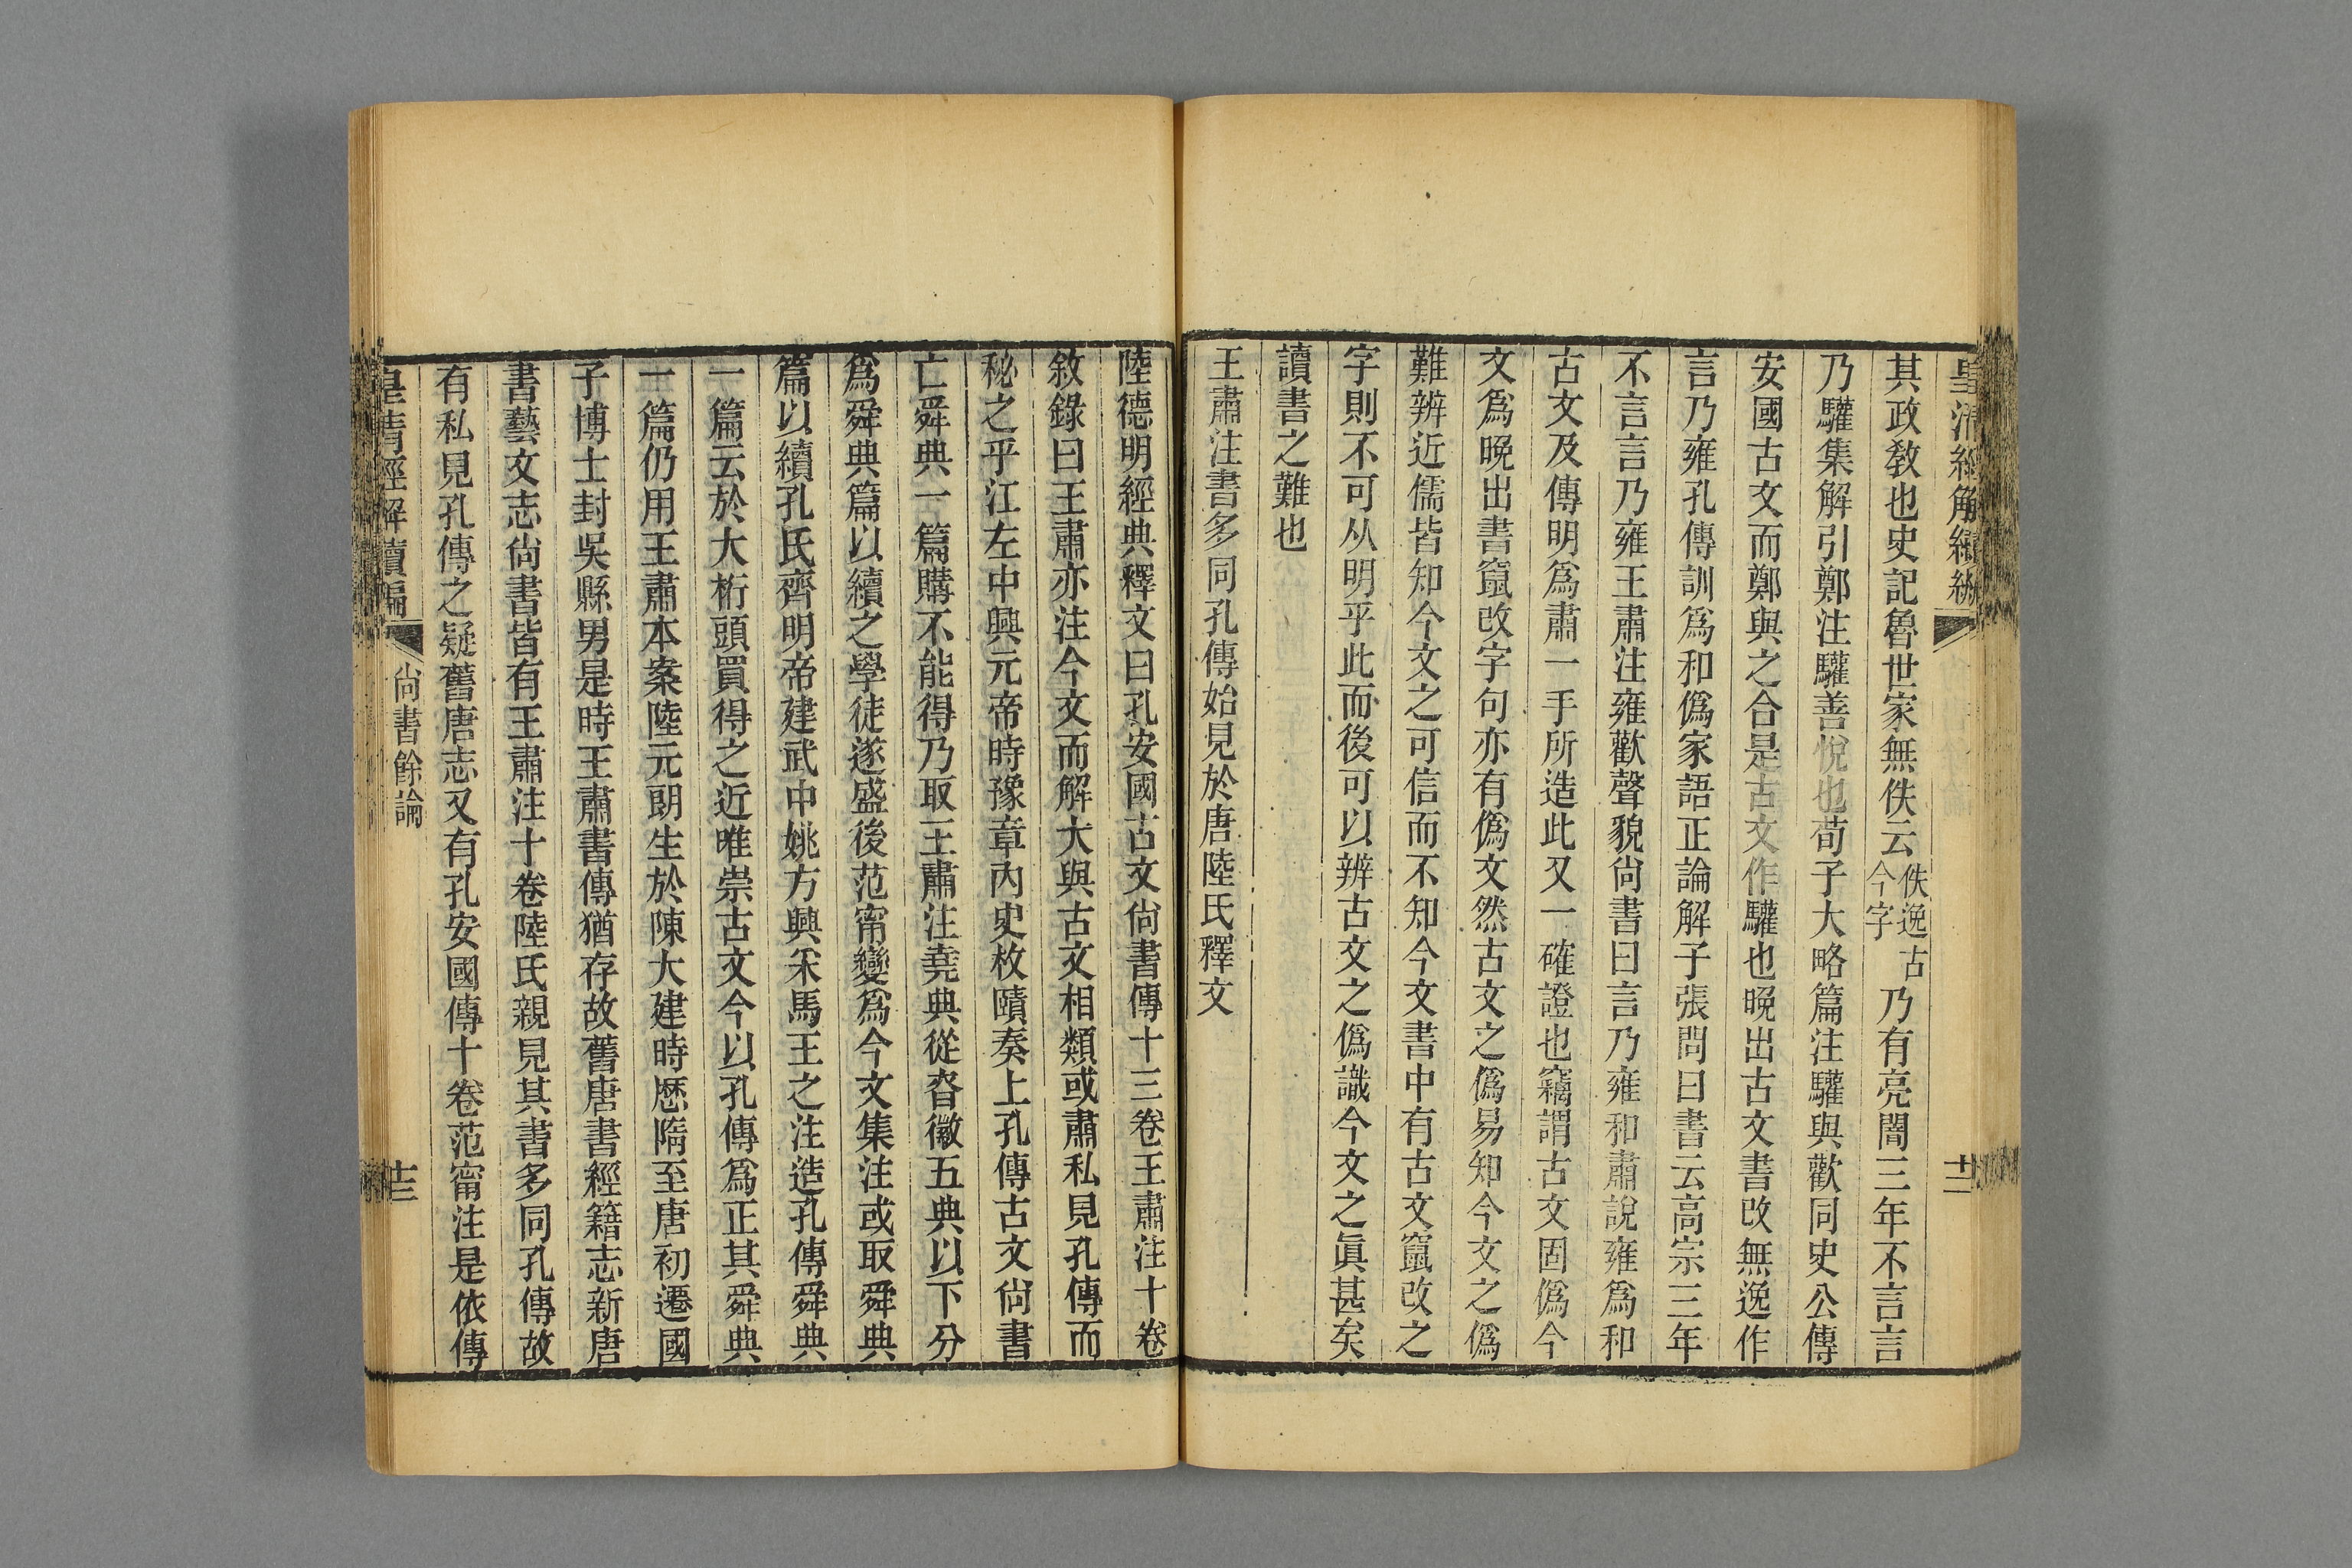 皇清經解續編
十二
其政教也史記魯世家無佚云佚逸古今字乃有亮闇三年不言言
乃驩集解引鄭注驩善悅也荀子大略篇注驩與歡同史公傳
安國古文而鄭與之合是古文作驩也晚出古文書改無逸作
言乃雍孔傳訓爲和僞家語正論解子張問曰書云高宗三年
不言言乃雍王肅注雍歡聲貌尙書曰言乃雍和肅說雍爲和
古文及傳明爲肅一手所造此又一確證也竊謂古文固僞今
文爲晚出書竄改字句亦有僞文然古文之僞易知今文之僞
難辨近儒皆知今文之可信而不知今文書中有古文竄改之
字則不可从明乎此而後可以辨古文之僞識今文之眞甚矣
讀書之難也
王肅注書多同孔傳始見於唐陸氏釋文
陸德明經典釋文曰孔安國古文尙書傳十三卷王肅注十卷
敘錄曰王肅亦注今文而解大與古文相類或肅私見孔傳而
秘之乎江左中興元帝時豫章內史枚賾奏上孔傳古文尙書
亡舜典一篇購不能得乃取王肅注堯典從昚徽五典以下分
爲舜典篇以續之學徒遂盛後范甯變爲今文集注或取舜典
篇以續孔氏齊明帝建武中姚方興采馬王之注造孔傳舜典
一篇云於大桁頭買得之近唯崇古文今以孔傳爲正其舜典
一篇仍用王肅本案陸元朗生於陳大建時歷隋至唐初遷國
子博士封吳縣男是時王肅書傳猶存故舊唐書經籍志新唐
書藝文志尙書皆有王肅注十卷陸氏親見其書多同孔傳故
有私見孔傳之疑舊唐志又有孔安國傳十卷范甯注是依傳
皇清經解續編
尙書餘論
十三